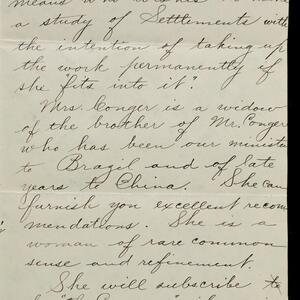 means who wishes to make
a study of Settlements with
the intention of taking up
the work permanently if
she "fits into it".
Mrs. Conger is a widow
of the brother of Mr. Conger
who has been our minister
to Brazil and of late
years to China. She can
furnish you excellent recom
mendations. She is a
woman of rare common
sense and refinement.
She will subscribe to